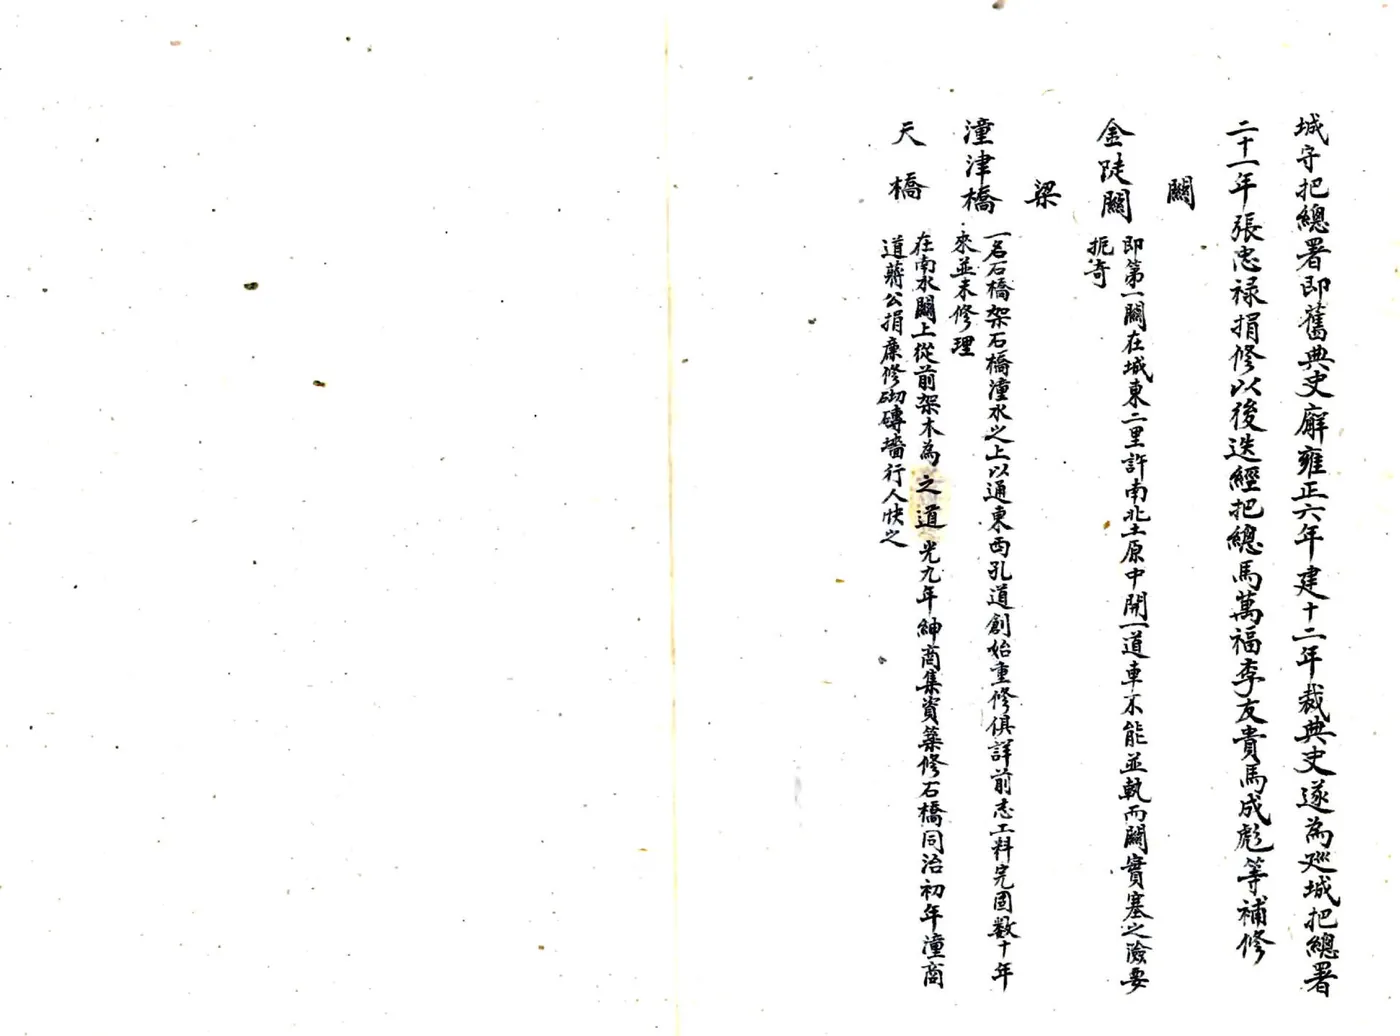 城守把總署即舊典史廨雍正六年建十二年裁典史遂為巡城把總署
二十一年張忠禄捐修以後迭經把總馬萬福李友貴馬成彪等補修
關
金陡關
即第一關在城東二里許南北土原中開一道車不能並軌而關實塞之險要
扼奇
梁
潼津橋
一名石橋架石橋潼水之上以通東西孔道創始重修俱詳前志工料完固數十年
來並未修理
天橋
在南水關上從前架木為之道光九年紳商集資築修石橋同治初年潼商
道蔣公捐廉修砌磚墻行人快之